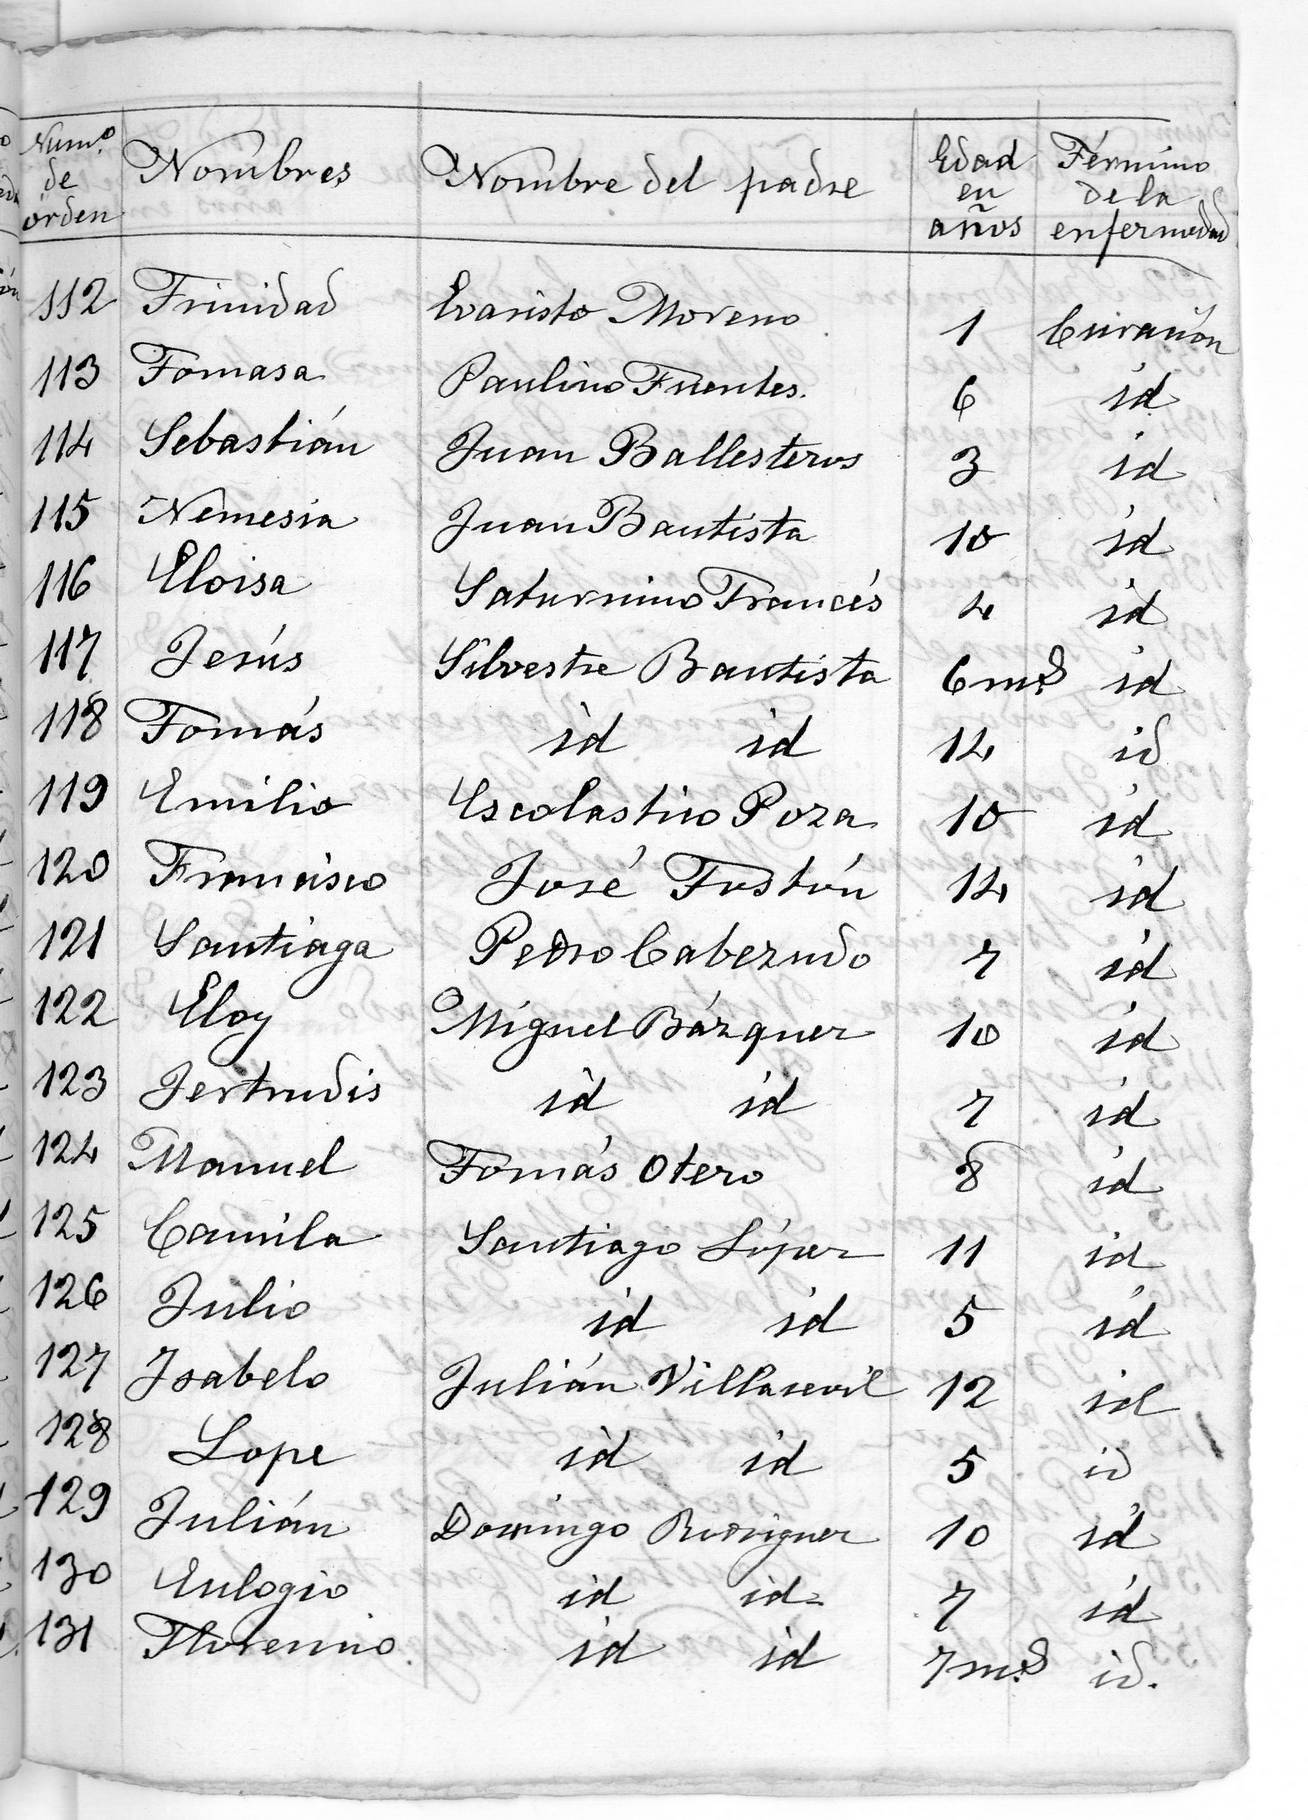 Num.º de orden Nombres Nombre del padre Edad en años Término de la enfermedad
112 Trinidad Evaristo Moreno 1 Curación
113 Tomasa Paulino Fuentes. 6 id
114 Sebastián Juan Ballesteros 3 id
115 Nemesia Juan Bautista 10 id
116 Eloisa Saturnino Francés 4 id
117 Jesús Silvestre Bautista 6 m.s id
118 Tomás id id 14 id
119 Emilio Escolastico Poza 10 id
120 Francisco José Tostón 14 id
121 Santiaga Pedro Cabezudo 7 id
122 Eloy Miguel Bázquez 10 id
123 Jertrudis id id 7 id
124 Manuel Tomás Otero 8 id
125 Camila Santiago López 11 id
126 Julio id id 5 id
127 Isabelo Julián Villasevil 12 id
128 Lope id id 5 id
129 Julián Domingo Rodriguez 10 id
130 Eulogio id id 7 id
131 Florencio. id id 7 m.s id.